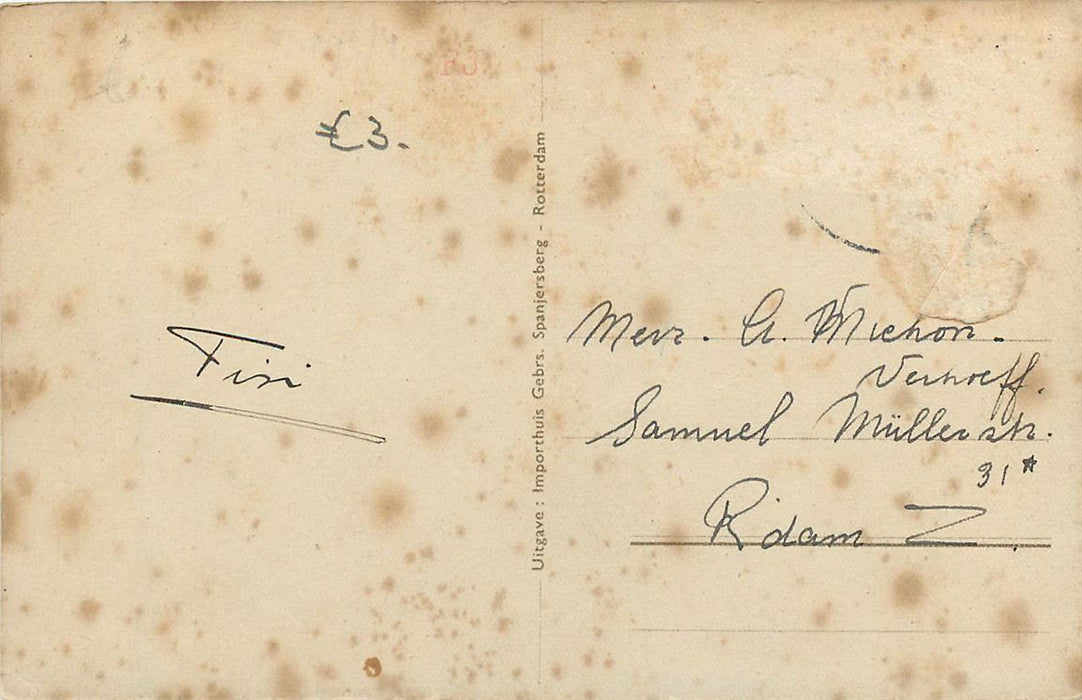 £3.
Fini
Uitgave: Importhuis Gebrs. Spanjersberg - Rotterdam
Mevr. A. Michon.
Verhoeff.
Samuel Müllerstr.
31*
R'dam Z.